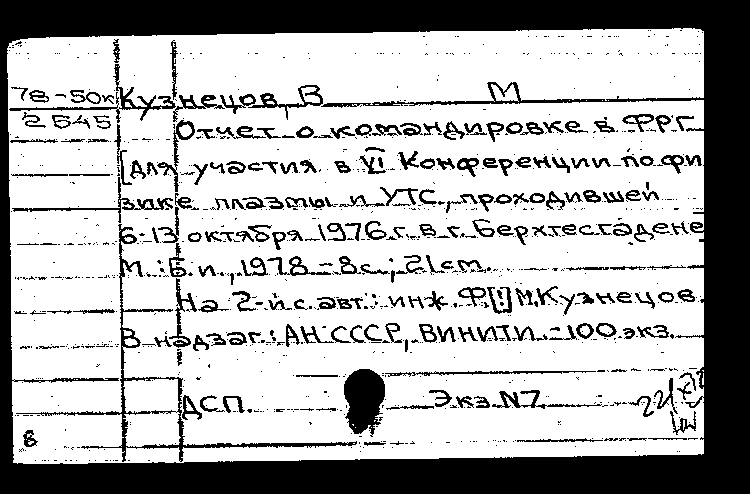 78-50к Кузнецов, В М
2545 Отчет о командировке в ФРГ
[для участия в VI Конференции по фи
зике плазмы и УТС, проходившей
6-13 октября 1976 г. в г. Берхтесгадене
М.: Б. и., 1978 - 8 с.; 21 см.
На 2-й с. авт.: инж. Ф[!]М. Кузнецов.
В надзаг.: АН СССР, ВИНИТИ. - 100 экз.
ДСП. Экз. N7.
8